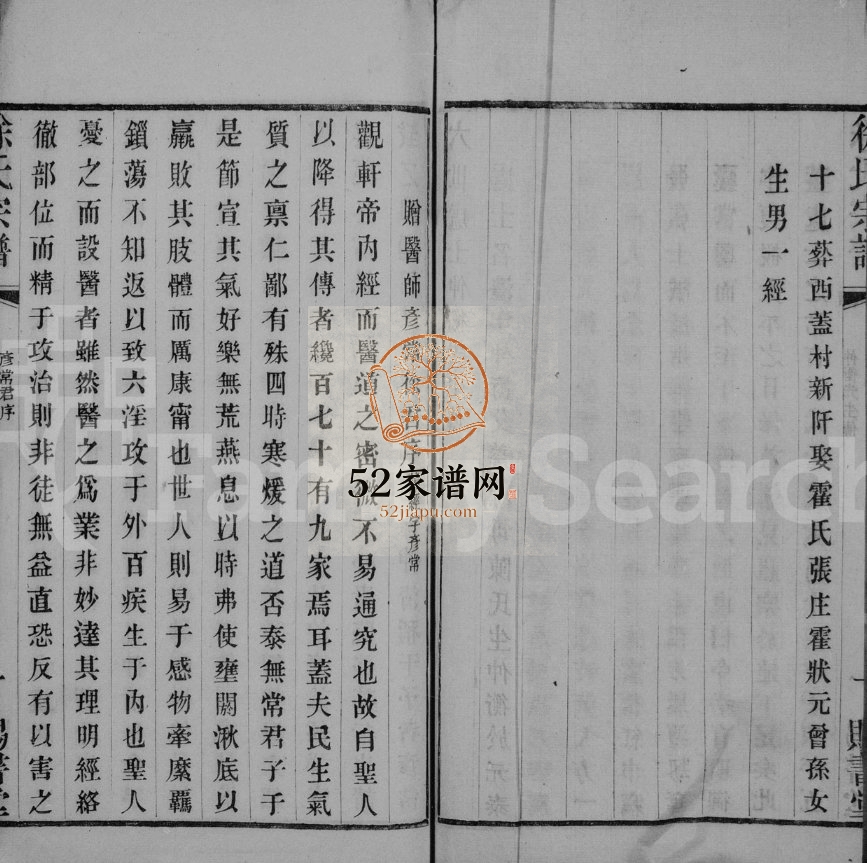 徐氏宗譜
十七葬西蓋村新阡娶霍氏張庄霍狀元曾孫女
生男一經
一 賜書堂
贈醫師彥常徐君序
子彥常
觀軒帝內經而醫道之密微不易通究也故自聖人
以降得其傳者纔百七十有九家焉耳蓋夫民生氣
質之禀仁鄙有殊四時寒煖之道否泰無常君子于
是節宣其氣好樂無荒燕息以時弗使壅閼湫底以
羸敗其肢體而厲康甯也世人則易于感物牽縻羈
鎖蕩不知返以致六淫攻于外百疾生于內也聖人
憂之而設醫者雖然醫之爲業非妙達其理明經絡
徹部位而精于攻治則非徒無益直恐反有以害之
徐氏宗譜
彥常君序
一 賜書堂
52家谱网
52jiapu.com
FamilySearch